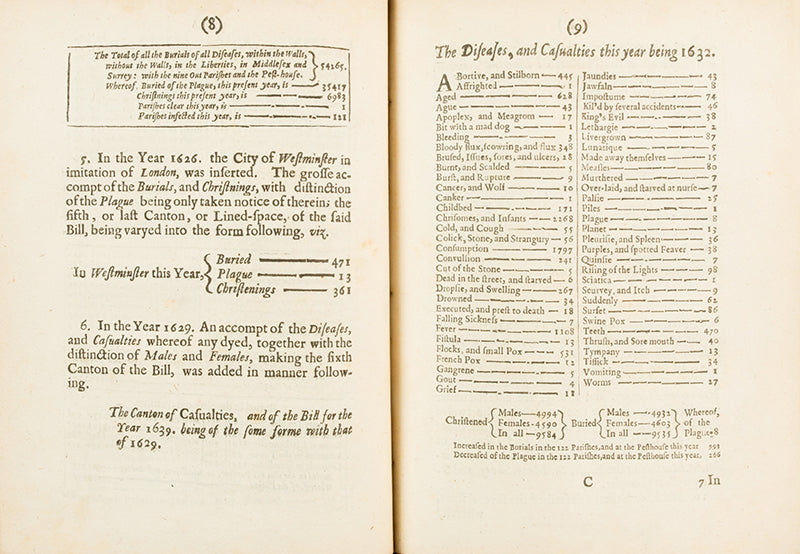 (8)
The Total of all the Burials of all Diſeaſes, within the Walls,
without the Walls, in the Liberties, in Middleſex and
Surrey: with the nine Out Pariſhes and the Peſt-houſe.
54265.
Whereof, Buried of the Plague, this preſent year, is —— 35417
Chriſtnings this preſent year, is —— 6983
Pariſhes clear this year, is —— 1
Pariſhes infected this year, is —— 121
5. In the Year 1626. the City of Weſtminſter in
imitation of London, was inſerted. The groſſe ac-
compt of the Burials, and Chriſtnings, with diſtinction
of the Plague being only taken notice of therein; the
fifth, or laſt Canton, or Lined-ſpace, of the ſaid
Bill, being varyed into the form following, viz.
In Weſtminſter this Year,
Buried —— 471
Plague —— 13
Chriſtenings —— 361
6. In the Year 1629. An accompt of the Diſeaſes,
and Caſualties whereof any dyed, together with the
diſtinction of Males and Females, making the ſixth
Canton of the Bill, was added in manner follow-
ing.
The Canton of Caſualties, and of the Bill for the
Year 1639. being of the ſome forme with that
of 1629.
(9)
The Diſeaſes, and Caſualties this year being 1632.
Abortive, and Stilborn — 445
Affrighted — 1
Aged — 628
Ague — 43
Apoplex, and Meagrom — 17
Bit with a mad dog — 1
Bleeding — 3
Bloody flux, ſcowring, and flux 348
Bruſed, Iſſues, ſores, and ulcers, 28
Burnt, and Scalded — 5
Burſt, and Rupture — 9
Cancer, and Wolf — 10
Canker — 1
Childbed — 171
Chriſomes, and Infants — 2268
Cold, and Cough — 55
Colick, Stone, and Strangury — 56
Conſumption — 1797
Convulſion — 241
Cut of the Stone — 5
Dead in the ſtreet, and ſtarved — 6
Dropſie, and Swelling — 267
Drowned — 34
Executed, and preſt to death — 18
Falling Sickneſs — 7
Fever — 1108
Fiſtula — 13
Flocks, and ſmall Pox — 531
French Pox — 12
Gangrene — 5
Gout — 4
Grief — 11
Jaundies — 43
Jawfaln — 8
Impoſtume — 74
Kil'd by ſeveral accidents — 46
King's Evil — 38
Lethargie — 2
Livergrown — 87
Lunatique — 5
Made away themſelves — 15
Meaſles — 80
Murthered — 7
Over-laid, and ſtarved at nurſe — 7
Palſie — 25
Piles — 1
Plague — 8
Planet — 13
Pleuriſie, and Spleen — 36
Purples, and ſpotted Feaver — 38
Quinſie — 7
Riſing of the Lights — 98
Sciatica — 1
Scurvey, and Itch — 9
Suddenly — 62
Surfet — 86
Swine Pox — 6
Teeth — 470
Thruſh, and Sore mouth — 40
Tympany — 13
Tiſſick — 34
Vomiting — 1
Worms — 27
Chriſtened
Males — 4994
Females - 4590
In all — 9584
Buried
Males — 4932
Females — 4603
In all — 9535
Whereof,
of the
Plague. 8
Increaſed in the Burials in the 122 Pariſhes, and at the Peſthouſe this year 993
Decreaſed of the Plague in the 122 Pariſhes, and at the Peſthouſe this year, 266
C
7 In